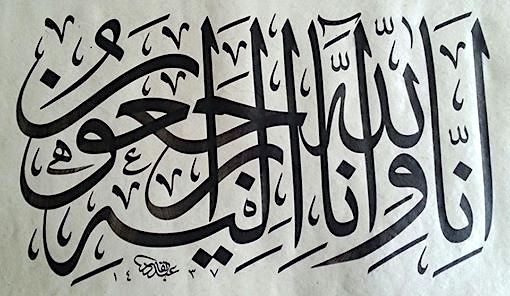 إنا لله وإنا إليه راجعون
عبدالقادر ١٤٣٧